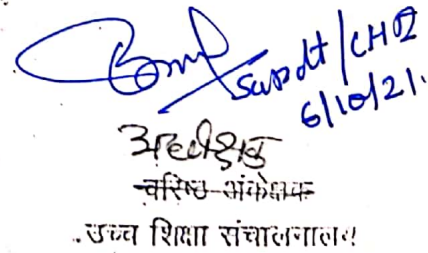 Supdt/CHE
6/10/21.
अधीक्षक
वरिष्ठ अंकेक्षक
उच्च शिक्षा संचालनालय